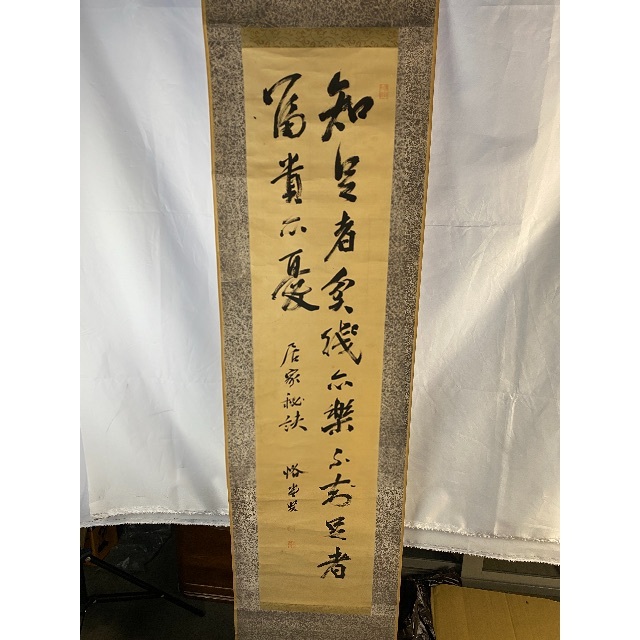 知足者貧賤亦樂不知足者
富貴亦憂
居家秘訣